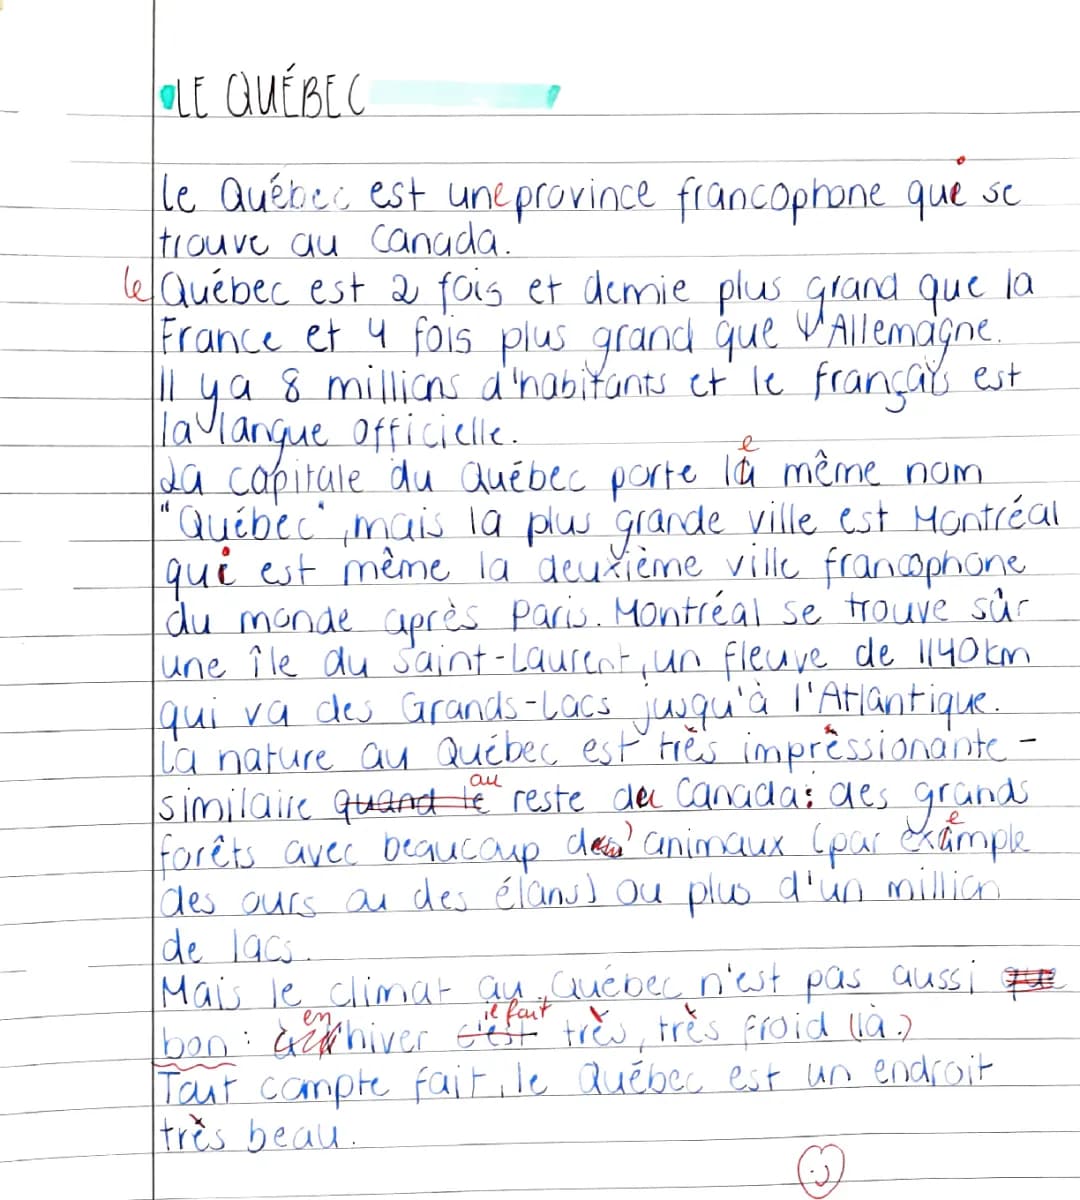 LE QUÉBEC
Le Québec est une province francophone qui se
trouve au Canada.
Le Québec est 2 fois et demie plus grand que la
France et 4 fois plus grand que l'Allemagne.
Il y a 8 millions d'habitants et le français est
la langue officielle.
La capitale du Québec porte le même nom
"Québec", mais la plus grande ville est Montréal
qui est même la deuxième ville francophone
du monde après Paris. Montréal se trouve sûr
une île du Saint-Laurent, un fleuve de 1140 km
qui va des Grands-Lacs jusqu'à l'Atlantique.
La nature au Québec est très impressionante -
similaire au reste du Canada: des grands
forêts avec beaucoup d'animaux (par exemple
des ours ou des élans) ou plus d'un million
de lacs.
Mais le climat au Québec n'est pas aussi
bon: en hiver il fait très, très froid (là.)
Tout compte fait, le Québec est un endroit
très beau.